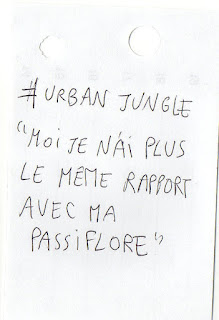 # URBAN JUNGLE
"MOI JE N'AI PLUS
LE MÊME RAPPORT
AVEC MA
PASSIFLORE"